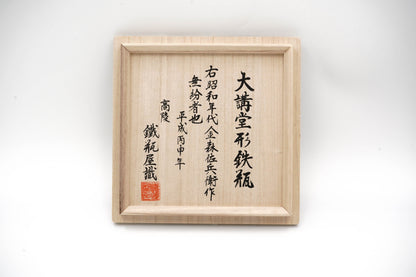 大講堂形鉄瓶
右昭和年代金森佐兵衛作
無紛者也
平成丙申年
高陵
鐵瓶屋識